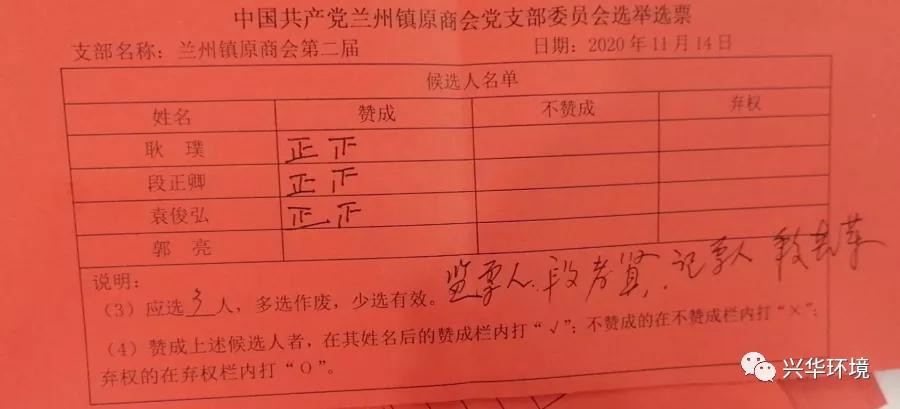 中国共产党兰州镇原商会党支部委员会选举选票
支部名称：兰州镇原商会第二届 日期：2020年11月14日
候选人名单
姓名 赞成 不赞成 弃权
耿 璞 正 正
段正卿 正 正
袁俊弘 正 正
郭 亮
说明：
监票人：段孝贤，记票人
（3）应选3人，多选作废，少选有效。
（4）赞成上述候选人者，在其姓名后的赞成栏内打“√”；不赞成的在不赞成栏内打“×”；
弃权的在弃权栏内打“O”。
兴华环境